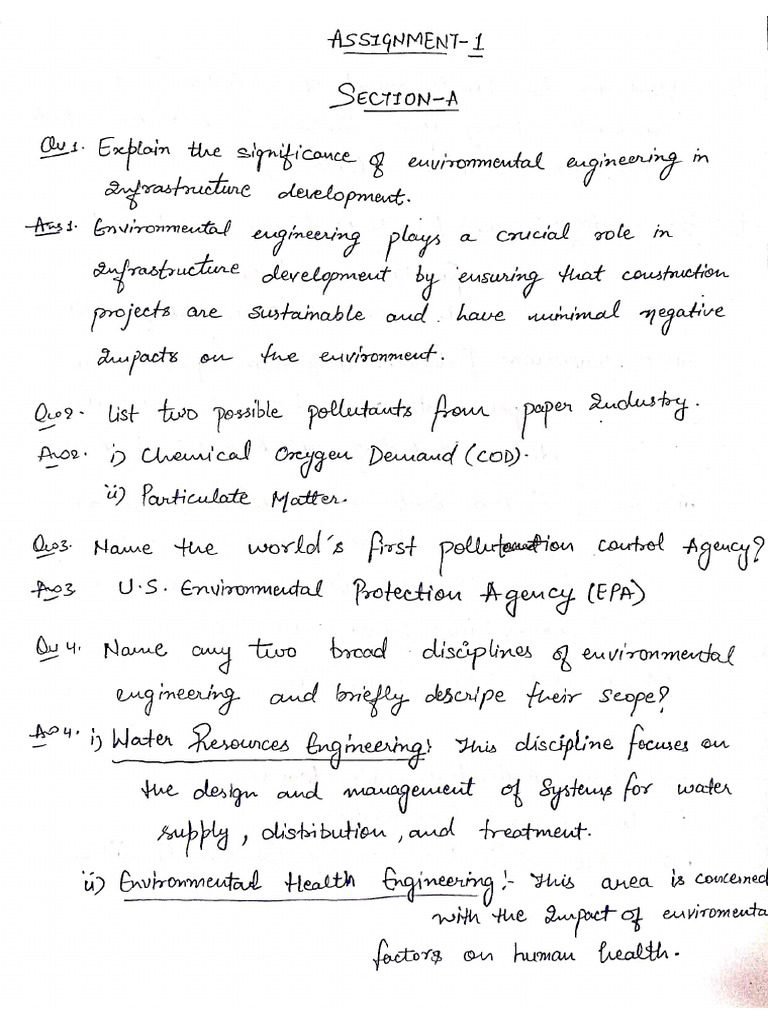 ASSIGNMENT-1
SECTION-A
Qu1. Explain the significance of environmental engineering in
Infrastructure development.
Ans1. Environmental engineering plays a crucial role in
Infrastructure development by ensuring that construction
projects are sustainable and have minimal negative
Impacts on the environment.
Qus2. List two possible pollutants from paper Industry.
Ans2. i) Chemical Oxygen Demand (COD).
ii) Particulate Matter.
Qus3. Name the world's first pollution control Agency?
Ans3 U.S. Environmental Protection Agency (EPA)
Qu4. Name any two broad disciplines of environmental
engineering and briefly descripe their scope?
Ans4. i) Water Resources Engineering: This discipline focuses on
the design and management of Systems for water
supply, distribution, and treatment.
ii) Environmental Health Engineering:- This area is concerned
with the Impact of enviromenta
factors on human health.